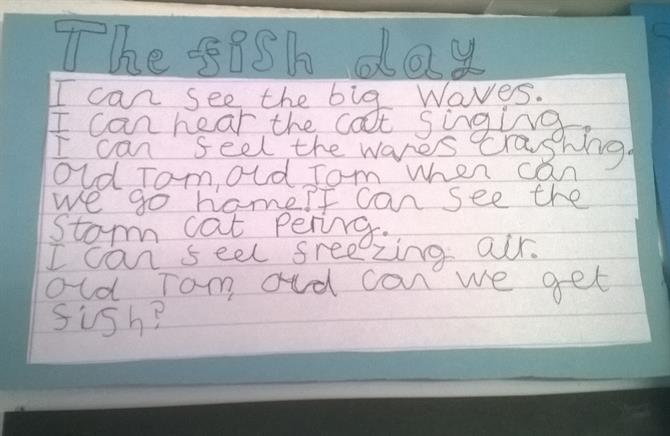 The fish day
I can see the big waves.
I can hear the cat singing.
I can seel the waves crashing.
Old Tom, Old Tom when can
we go home? I can see the
Stomn cat pering.
I can seel freezing air.
Old Tom, Old can we get
fish?